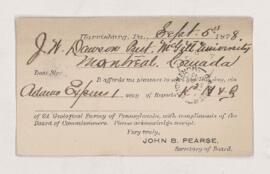 Harrisburg, Pa., Sept. 5th 1878
J. W. Dawson Prest. McGill University
Montreal, Canada
Dear Sir:
It affords me pleasure to send you this day, via
Adams Express 1 copy of Reports H & G
of 2d Geological Survey of Pennsylvania, with compliments of the
Board of Commissioners. Please acknowledge receipt.
Very truly,
JOHN B. PEARSE,
Secretary of Board.